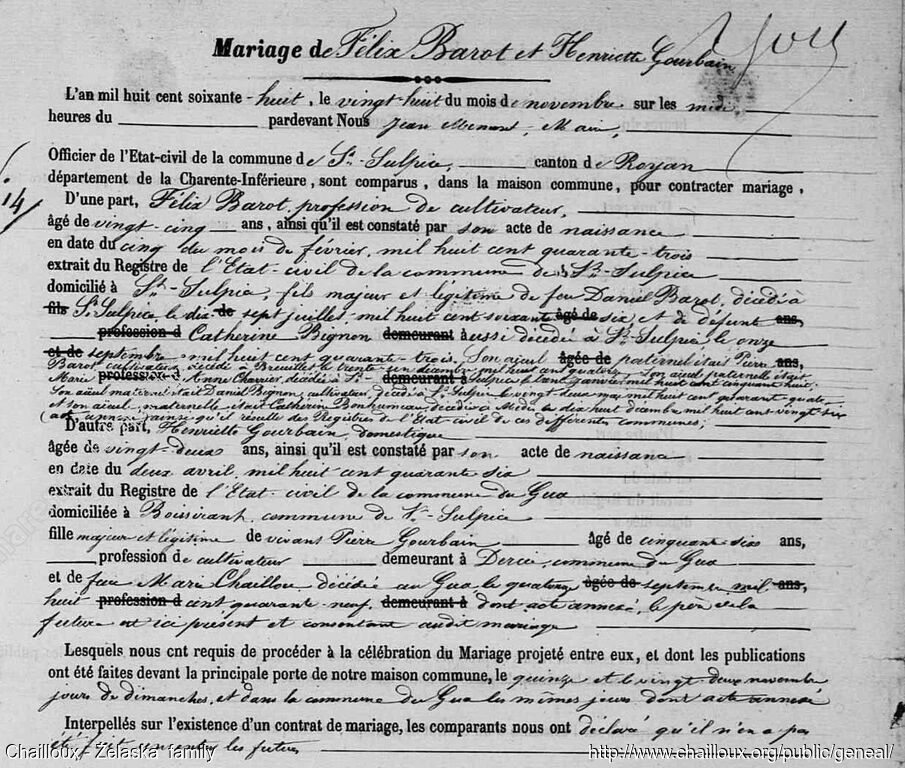 Mariage de Félix Barot et Henriette Gourbain
L'an mil huit cent soixante-huit, le vingt-huit du mois de novembre sur les midi
heures du pardevant Nous Jean Menant, Maire,
Officier de l'Etat-civil de la commune de St-Sulpice, canton de Royan
département de la Charente-Inférieure, sont comparus, dans la maison commune, pour contracter mariage,
14
D'une part, Félix Barot, profession de cultivateur,
âgé de vingt-cinq ans, ainsi qu'il est constaté par son acte de naissance
en date du cinq du mois de février, mil huit cent quarante-trois
extrait du Registre de l'Etat-civil de la commune de St-Sulpice
domicilié à St-Sulpice, fils majeur et légitime de feu Daniel Barot, décédé à
fils St Sulpice, le dix de sept juillet mil huit cent soixante âgé de six et de défunt ans,
profession d Catherine Bignon demeurant à aussi décédée à St-Sulpice, le onze
et de septembre mil huit cent quarante-trois. Son aïeul âgée de paternel était Pierre ans,
Barot cultivateur, décédé à Breuillet le trente un décembre mil huit cent quatorze. Son aïeul paternel était
Marie profession d Anne Charrier, décédée à St- demeurant à Sulpice le janvier mil huit cent cinquante huit.
Son aïeul maternel était Daniel Bignon, cultivateur, décédé à St Sulpice le vingt deux mai mil huit cent quarante quatre
et son aïeul, maternelle était Catherine Bonhumeau décédée à Médis le dix huit décembre mil huit cent vingt six
ainsi qu'il résulte des Registres de l'Etat civil de ces différentes communes;
D'autre part, Henriette Gourbain, domestique
âgée de vingt-deux ans, ainsi qu'il est constaté par son acte de naissance
en date du deux avril, mil huit cent quarante six
extrait du Registre de l'Etat-civil de la commune du Gua
domiciliée à Boissirant, commune de St-Sulpice
fille majeur et légitime de vivant Pierre Gourbain âgé de cinquante six ans,
profession de cultivateur demeurant à Dercie, commune du Gua
et de feue Marie Chaillou, décédée au Gua le quatorze âgée de septembre mil ans,
huit profession d cent quarante neuf demeurant à dont acte annexé, le père de la
future est ici présent et consentant audit mariage
Lesquels nous ont requis de procéder à la célébration du Mariage projeté entre eux, et dont les publications
ont été faites devant la principale porte de notre maison commune, le quinze et le vingt-deux novembre
jours de dimanches, et dans la commune du Gua les mêmes jours dont acte annexé
Interpellés sur l'existence d'un contrat de mariage, les comparants nous ont déclaré qu'il n'en a pas
été fait entre les futurs
Chailloux / Zelaska family
http://www.chailloux.org/public/geneal/